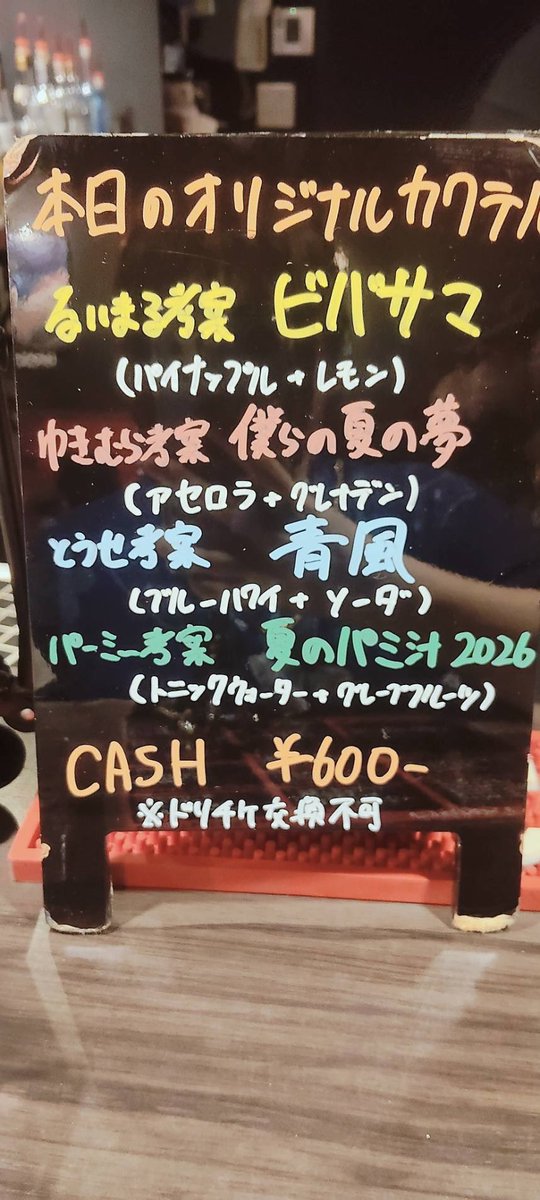 本日のオリジナルカクテル
るいまる考案 ビバサマ
(パイナップル+レモン)
ゆきむら考案 僕らの夏の夢
(アセロラ+グレナデン)
とうせ考案 青風
(ブルーハワイ+ソーダ)
パーミー考案 夏のパミ汁 2026
(トニックウォーター+グレープフルーツ)
CASH ¥600-
※ドリチケ交換不可